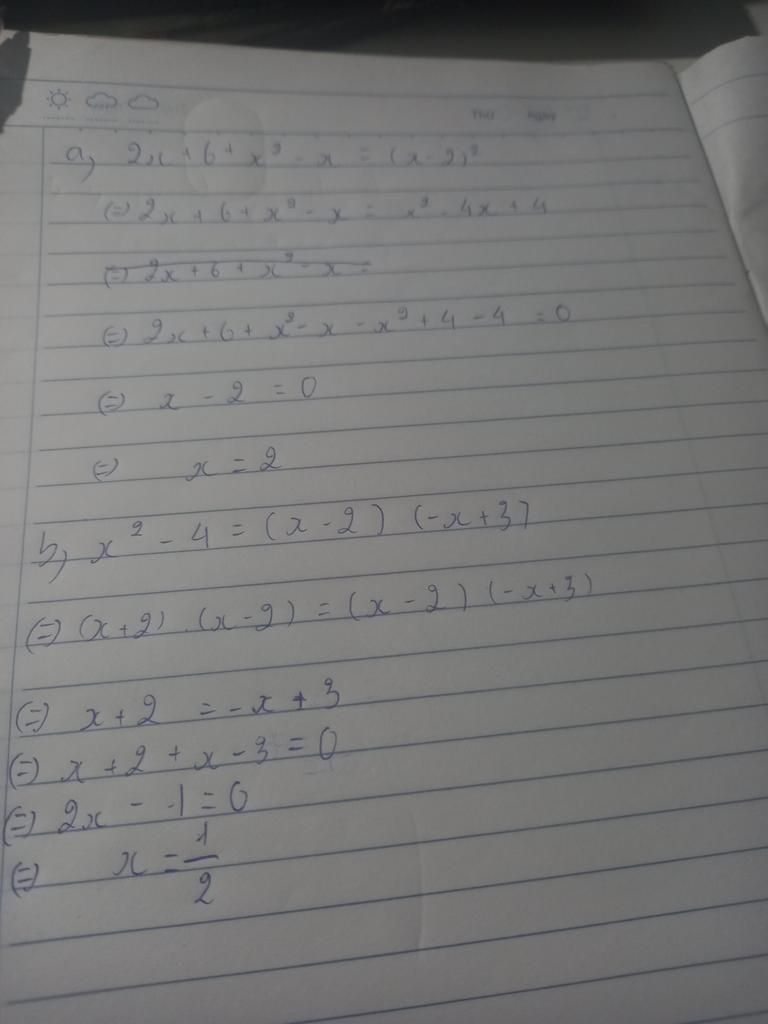 a, 2x + 6 + x² - x = (x - 2)²
(=) 2x + 6 + x² - x = x² - 4x + 4
(=) 2x + 6 + x² - x =
(=) 2x + 6 + x² - x - x² + 4 - 4 = 0
(=) x - 2 = 0
(=) x = 2
b, x² - 4 = (x - 2) (-x + 3)
(=) (x + 2) . (x - 2) = (x - 2) (-x + 3)
(=) x + 2 = -x + 3
(=) x + 2 + x - 3 = 0
(=) 2x - 1 = 0
(=) x = 1/2